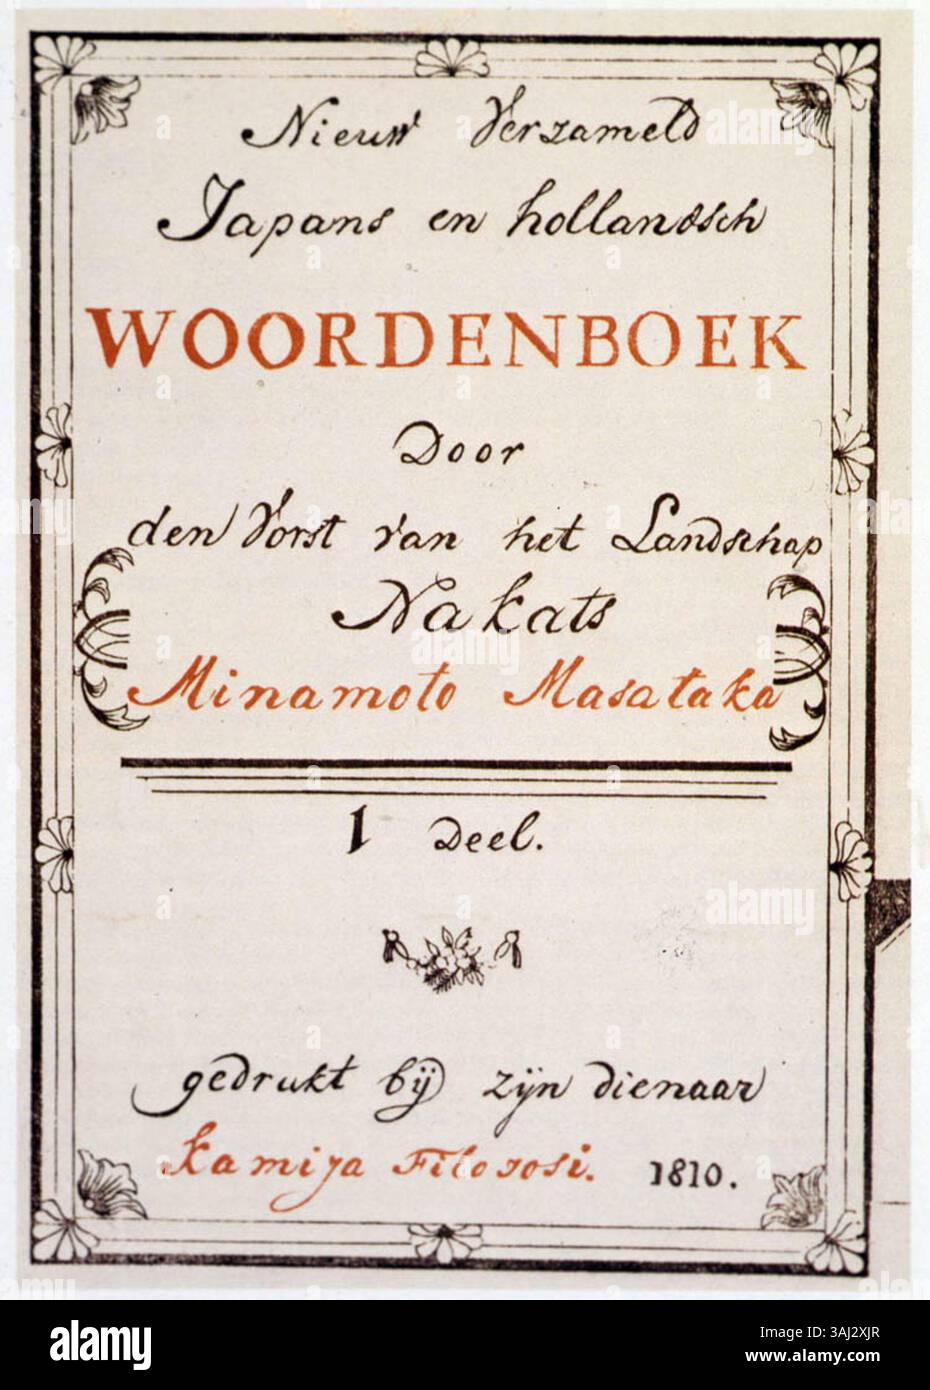 Nieuw Verzameld
Japans en hollandsch
WOORDENBOEK
Door
den Vorst van het Landschap
Nakats
Minamoto Masataka
1 Deel.
gedrukt bij zijn dienaar
Kamija Filososi. 1810.
alamy
Image ID: 3AJ2XJR
www.alamy.com